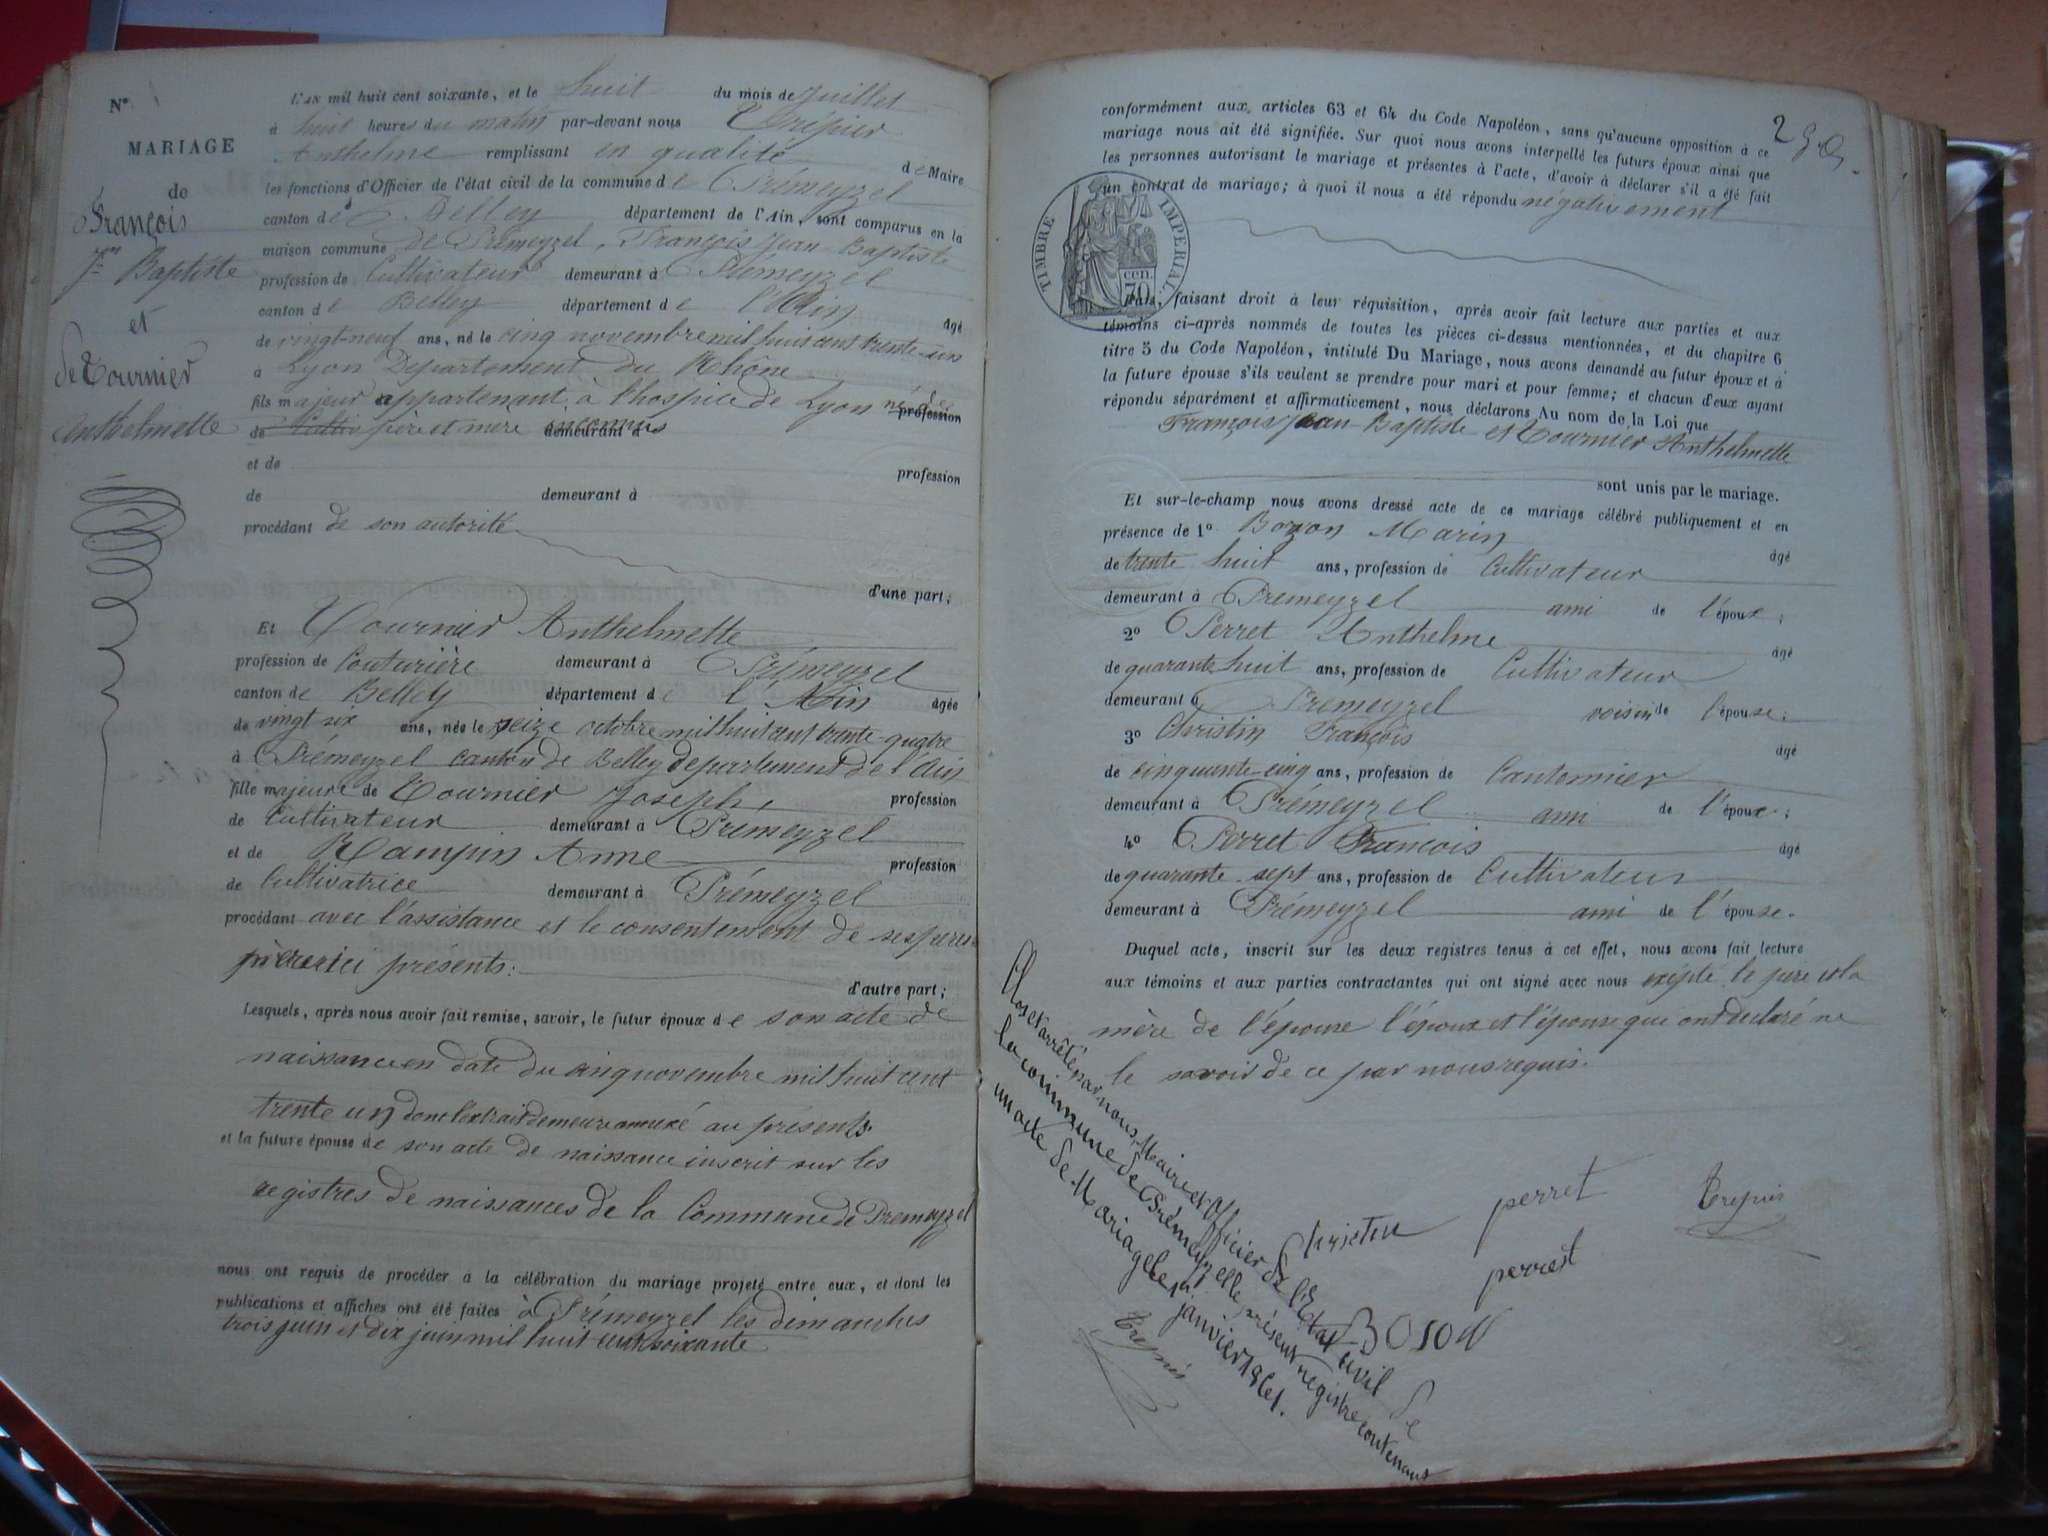 N°
MARIAGE
de
François
Jean Baptiste
et
de Tournier
Anthelmette
L'AN mil huit cent soixante, et le huit du mois de juillet
à huit heures du matin par-devant nous Trépier
Anthelme remplissant en qualité de Maire
les fonctions d'Officier de l'état civil de la commune de Prémeyzel
canton de Belley département de l'Ain, sont comparus en la
maison commune de Prémeyzel, François Jean Baptiste
profession de Cultivateur demeurant à Prémeyzel
canton de Belley département de l'Ain âgé
de vingt-neuf ans, né le cinq novembre mil huit cent trente-un
à Lyon Département du Rhône
fils majeur appartenant à l'hospice de Lyon né de profession
de père et mère inconnus demeurant à
et de profession
de demeurant à
procédant de son autorité
d'une part;
Et Tournier Anthelmette
profession de Couturière demeurant à Prémeyzel
canton de Belley département de l'Ain âgée
de vingt six ans, née le seize octobre mil huit cent trente-quatre
à Prémeyzel canton de Belley département de l'Ain
fille majeure de Tournier Joseph, profession
de Cultivateur demeurant à Prémeyzel
et de Rampin Anne profession
de Cultivatrice demeurant à Prémeyzel
procédant avec l'assistance et le consentement de ses père et
mère ici présents:
d'autre part;
Lesquels, après nous avoir fait remise, savoir, le futur époux de son acte de
naissance en date du cinq novembre mil huit cent
trente un dont l'extrait demeure annexé au présent
et la future épouse de son acte de naissance inscrit sur les
registres de naissances de la Commune de Prémeyzel
nous ont requis de procéder à la célébration du mariage projeté entre eux, et dont les
publications et affiches ont été faites à Prémeyzel les dimanches
trois juin et dix juin mil huit cent soixante
conformément aux articles 63 et 64 du Code Napoléon, sans qu'aucune opposition à ce
mariage nous ait été signifiée. Sur quoi nous avons interpellé les futurs époux ainsi que
les personnes autorisant le mariage et présentes à l'acte, d'avoir à déclarer s'il a été fait
un contrat de mariage; à quoi il nous a été répondu négativement
TIMBRE IMPERIAL
70 cen.
Puis, faisant droit à leur réquisition, après avoir fait lecture aux parties et aux
témoins ci-après nommés de toutes les pièces ci-dessus mentionnées, et du chapitre 6
titre 5 du Code Napoléon, intitulé Du Mariage, nous avons demandé au futur époux et à
la future épouse s'ils veulent se prendre pour mari et pour femme; et chacun d'eux ayant
répondu séparément et affirmativement, nous déclarons Au nom de la Loi que
François Jean Baptiste et Tournier Anthelmette
sont unis par le mariage.
Et sur-le-champ nous avons dressé acte de ce mariage célébré publiquement et en
présence de 1° Bozon Marin âgé
de trente huit ans, profession de Cultivateur
demeurant à Prémeyzel ami de l'époux;
2° Perret Anthelme âgé
de quarante huit ans, profession de Cultivateur
demeurant à Prémeyzel voisin de l'épouse;
3° Christin François âgé
de cinquante-cinq ans, profession de Cantonnier
demeurant à Prémeyzel ami de l'époux;
4° Perret François âgé
de quarante-sept ans, profession de Cultivateur
demeurant à Prémeyzel ami de l'épouse.
Duquel acte, inscrit sur les deux registres tenus à cet effet, nous avons fait lecture
aux témoins et aux parties contractantes qui ont signé avec nous exépté le père et la
mère de l'épouse l'époux et l'épouse qui ont declaré ne
le savoir de ce par nous requis.
perret Trepier
Christin
perret
BOSON
Clos et arrêté par nous, Maire et Officier de l'Etat civil de
la commune de Prémeyzel le présent registre contenant
un acte de Mariage le janvier 1861.
Trepier